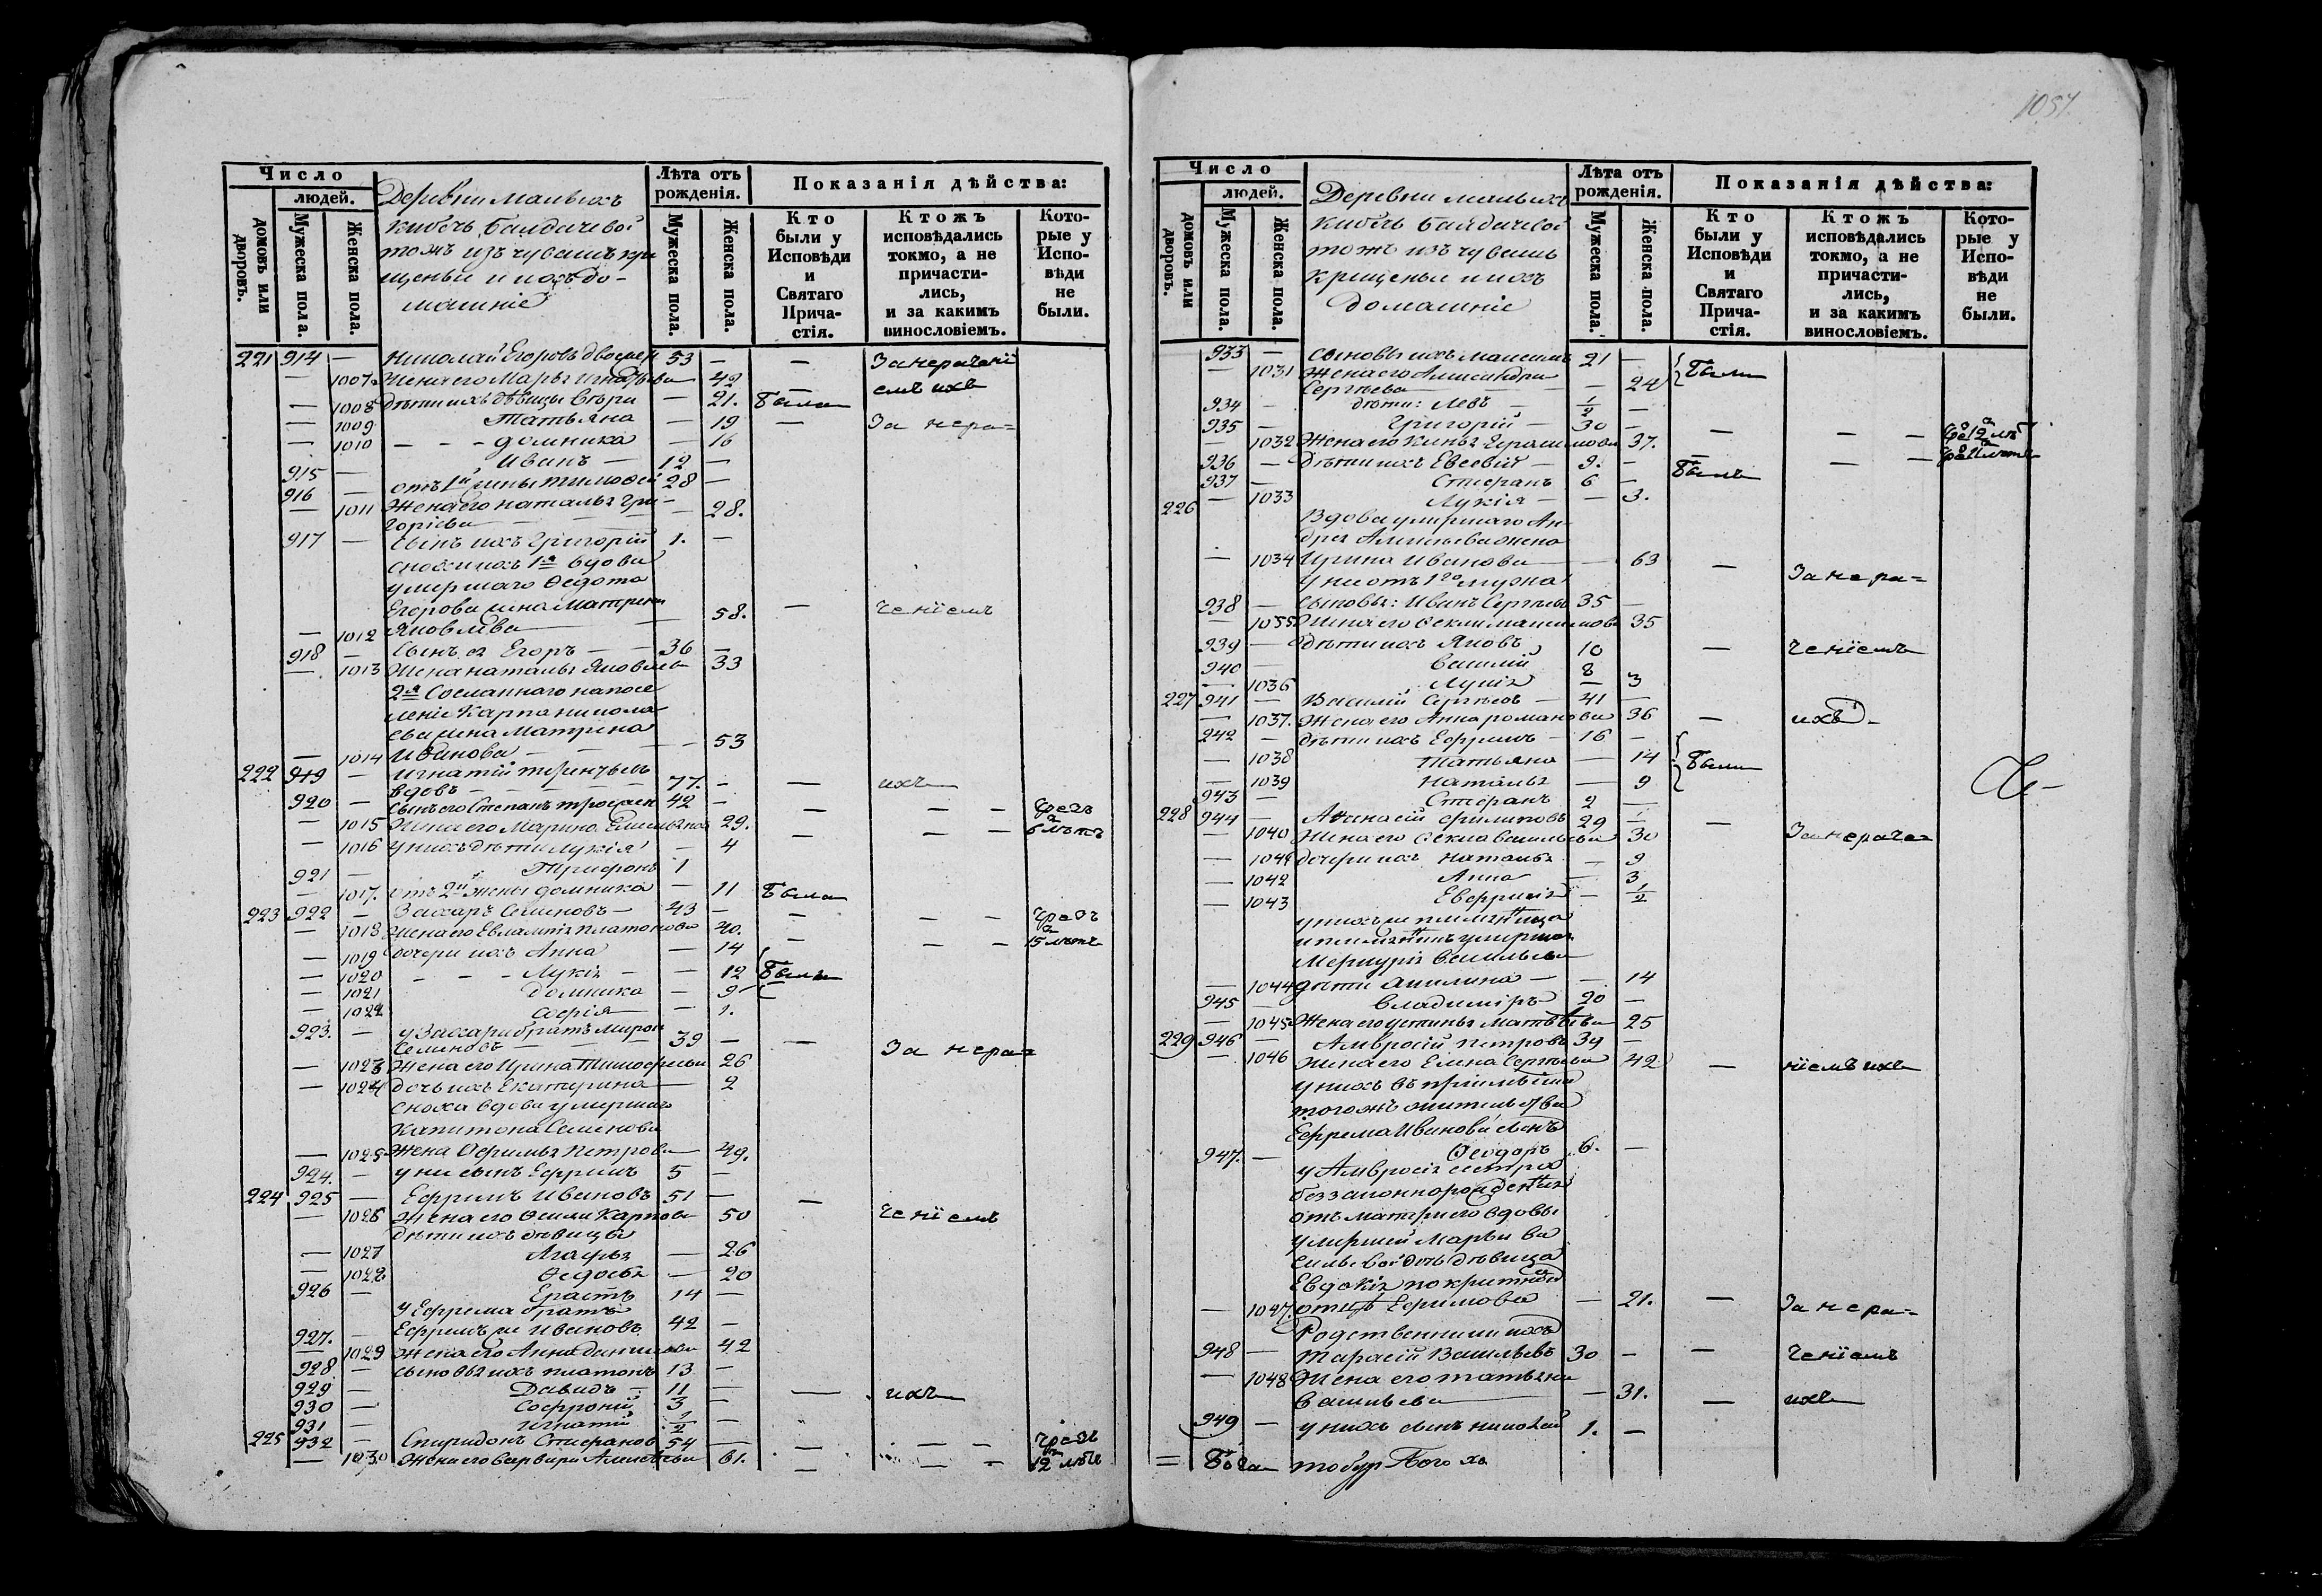 1057.
Число
людей.
домовъ или дворовъ.
Мужеска пола.
Женска пола.
Деревни Малыхъ
Кибечь Байдичевой
тожъ изъ чувашъ кре
щеные и ихъ до-
машніе
Лѣта отъ рожденія.
Мужеска пола.
Женска пола.
Показанія дѣйства:
Кто были у Исповѣди и Святаго Прича-стія.
Ктожъ исповѣдались токмо, а не причасти-лись, и за какимъ винословіемъ.
Кото-рые у Испо-вѣди не были.
221 914 — Николай Егоровъ 53 — — За нерачені
— 1007 Жена его Марья Игнатьева 42 — емъ ихъ
— 1008 дѣти ихъ дѣвицы Вѣра — 21. Была
— 1009 Татьяна — 19 — За нера=
— 1010 — — домника — 16
915 — Иванъ — 12 —
916 — отъ 1й жены Тимофей 28 —
— 1011 Жена его Наталья Гри-
горіева — 28.
917 — Сынъ ихъ Григорій 1. —
сноха ихъ 1я вдова
умершаго Ѳедота
Егорова жена Матрена
— 1012 Яковлева — 58. — ченіемъ
918 — Сынъ ея Егоръ — 36 —
— 1013 Жена Наталья Яковлева 33
2я Сосланнаго на посе
леніе Карпа Никола
ева жена Матрена
— 1014 Иванова — 53
222 919 — Игнатій Терентьевъ
вдовъ — 77. — — ихъ
920 — Сынъ его Степанъ 42 — — — — Чрезъ
— 1015 Жена его Марина Емельянова 29. — — — 6 лѣтъ
— 1016 у нихъ дѣти Лукія — 4
921 — Трифонъ 1
— 1017. отъ 2й жены домника — 11 Была
223 922 — Захаръ Семеновъ — 43 — — — — Чрезъ
— 1018 Жена его Евлампія Платонова 40. — — — 15 лѣтъ
— 1019 дочери ихъ Анна — 14
— 1020 — — — Лукія — — 12 Были
— 1021 Домника — 9
— 1022 Софія — 1.
923. — у Захара братъ Миронъ
Семеновъ — 39 — — За нера=
— 1023 Жена его Ирина Тимофеева 26
— 1024 дочь ихъ Екатерина — 2
Сноха вдова умершаго
Капитона Семенова
— 1025 Жена Ѳефилья Петрова — 49.
924. — у ней сынъ Ефремъ 5 —
224 925 — Ефремъ Ивановъ 51 — —
— 1026 Жена его Ѳекла Карпова 50 ченіемъ
дѣти ихъ дѣвицы
— 1027 Агафья — 26
— 1028 Ѳедосья — 20
926 — Ерастъ 14 —
у Ефрема братъ
927. — Ефремъ же Ивановъ 42 —
— 1029 Жена его Анна Данилова 42
928 — сыновья ихъ Платонъ 13 —
929 — Давидъ — 11 — — ихъ
930 — Софроній 3 —
931 — Игнатій 1/2 —
225 932 — Спиридонъ Стефановъ 54 — — — — Чрезъ
— 1030 Жена его Варвара Алексѣева 61. — — — 12 лѣтъ
Число
людей.
домовъ или дворовъ.
Мужеска пола.
Женска пола.
Деревни Малыхъ
Кибечь Байдичевой
тожъ изъ чувашъ
крещеные и ихъ
домашніе
Лѣта отъ рожденія.
Мужеска пола.
Женска пола.
Показанія дѣйства:
Кто были у Исповѣди и Святаго Прича-стія.
Ктожъ исповѣдались токмо, а не причасти-лись, и за какимъ винословіемъ.
Кото-рые у Испо-вѣди не были.
933 — Сыновья ихъ Максимъ 21 —
— 1031 Жена его Александра Были
Сергѣева — — 24
934 — дѣти: Левъ — 1/2 —
935 — Григорій — 30 — — —
— 1032 Жена его Герасимова 37. — —
936 — Дѣти ихъ Евсевій — 9. — Былъ
937 — Стефанъ 6 —
— 1033 Лукія — — 3.
226 Вдова умершаго Ан-
дрея Алексѣева жена
— 1034 Ирина Иванова — — 63 — За нера=
У ней отъ 1го мужа
938 — Сыновья: Иванъ Сергѣевъ 35 —
— 1035 Жена его Ѳекла Максимова 35
939 — дѣти ихъ Яковъ 10 — ченіемъ
940 — Василій 8
— 1036 Лукія — 3
227 941 — Василій Сергѣевъ — 41 —
— 1037. Жена его Анна Романова 36 — ихъ —
942 — дѣти ихъ Ефремъ — 16 —
— 1038 Татьяна — 14 Были
— 1039 Наталья — 9
943 — Стефанъ 2 —
228 944 — Аѳанасій Филиповъ 29 — —
— 1040 Жена его Ѳекла Васильева 30 За нераче=
— 1041 дочери ихъ Наталья — 9
— 1042 Анна — 3
— 1043 Евфросинія — 1/2
у нихъ же племянница
и племянникъ умершаго
Меркурія Васильева
— 1044 дѣти Акилина — — 14
945 — Владиміръ 20 —
— 1045 Жена его Устинья Матвѣева 25
229 946 — Амвросій Петровъ 39 —
— 1046 Жена его Елена Сергѣева 42 — ніемъ ихъ
у нихъ въ пріемышахъ
того жъ жительства
Ефрема Иванова сынъ
947. — Ѳеодоръ 6. —
у Амвросія сестра
беззаконнорожденная
отъ матери его вдовы
умершей Марьи Ва
сильевой дочь дѣвица
Евдокія по крестному
— 1047. отцѣ Ефимова — 21. — За нера=
Родственники ихъ
948 — Тарасій Васильевъ 30 — — ченіемъ
— 1048 Жена его Татьяна
Васильева — 31. — ихъ
949 — у нихъ сынъ Николай 1. —